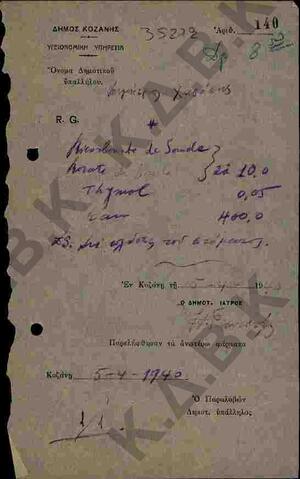 ΔΗΜΟΣ ΚΟΖΑΝΗΣ
ΥΓΕΙΟΝΟΜΙΚΗ ΥΠΗΡΕΣΙΑ
35279
Ἀριθ. 140
Δρ 8
Ὄνομα Δημοτικοῦ
ὑπαλλήλου.
R. G.
Bicarbonate de Soude
Borate de Soude āā 10.0
Thymol 0,05
Eau 400,0
ΔΣ. διὰ πλύσεις τοῦ στόματος.
Ἐν Κοζάνῃ τῇ 5
Ο ΔΗΜΟΤ. ΙΑΤΡΟΣ
Παρελήφθησαν τὰ ἀνωτέρω φάρμακα
Κοζάνη 5-4-1940
Ὁ Παραλαβὼν
Δημοτ. ὑπάλληλος